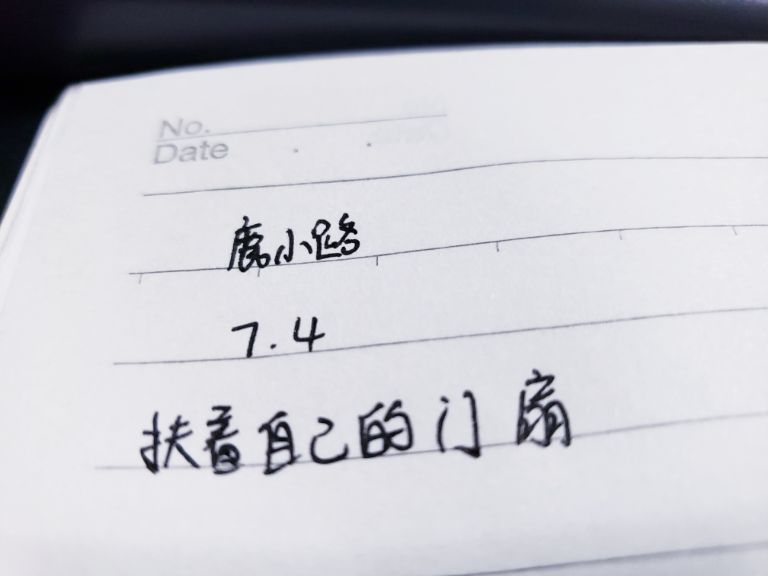 No.
Date . .
鹿小路
7.4
扶着自己的门扇